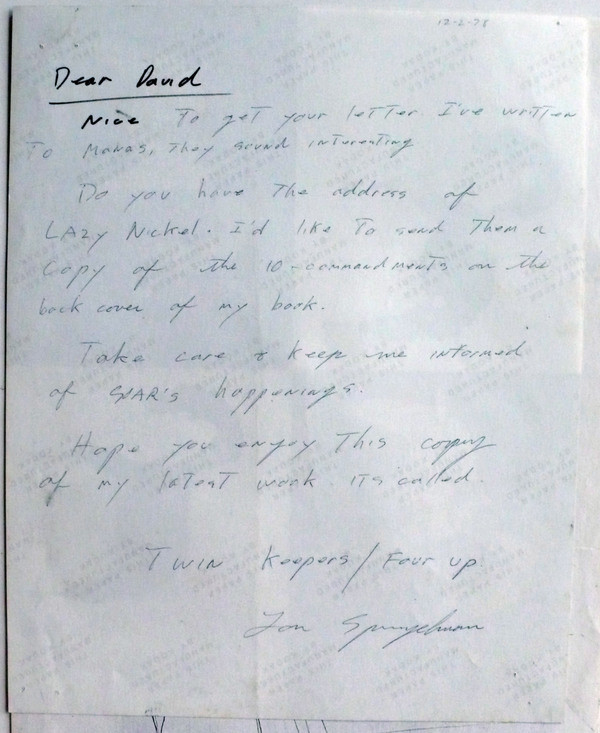 12-2-78
Dear David
Nice To get your letter. I've written
To Manas, They sound interesting
Do you have The address of
LAzy Nickel. I'd like To send Them a
copy of the 10-commandments on the
back cover of my book.
Take care & keep me informed
of happenings.
Hope you enjoy This copy
of my latest work. ITs called.
TWIN Keepers / Four up